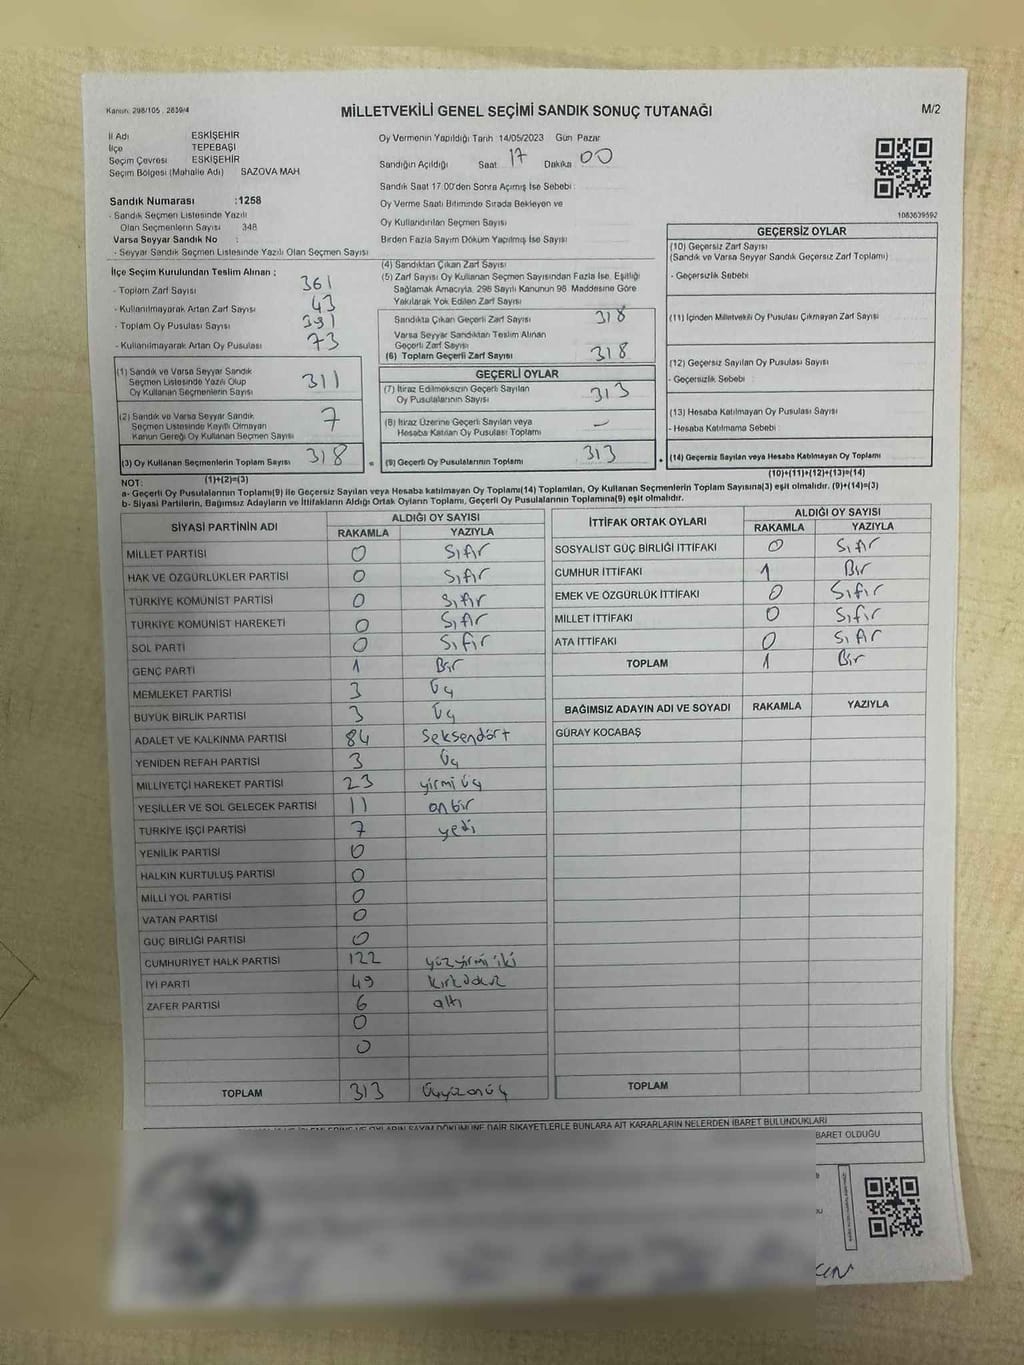 Kanun: 298/105, 2839/4
MİLLETVEKİLİ GENEL SEÇİMİ SANDIK SONUÇ TUTANAĞI
M/2
İl Adı ESKİŞEHİR
İlçe TEPEBAŞI
Seçim Çevresi ESKİŞEHİR
Seçim Bölgesi (Mahalle Adı) SAZOVA MAH
Oy Vermenin Yapıldığı Tarih 14/05/2023 Gün Pazar
Sandığın Açıldığı Saat 17 Dakika 00
Sandık Saat 17.00'den Sonra Açılmış İse Sebebi :
Oy Verme Saati Bitiminde Sırada Bekleyen ve
Oy Kullandırılan Seçmen Sayısı
Birden Fazla Sayım Döküm Yapılmış İse Sayısı
1083639592
Sandık Numarası :1258
- Sandık Seçmen Listesinde Yazılı
Olan Seçmenlerin Sayısı 348
Varsa Seyyar Sandık No :
- Seyyar Sandık Seçmen Listesinde Yazılı Olan Seçmen Sayısı
İlçe Seçim Kurulundan Teslim Alınan ;
- Toplam Zarf Sayısı 361
- Kullanılmayarak Artan Zarf Sayısı 43
- Toplam Oy Pusulası Sayısı 391
- Kullanılmayarak Artan Oy Pusulası 73
(1) Sandık ve Varsa Seyyar Sandık
Seçmen Listesinde Yazılı Olup
Oy Kullanan Seçmenlerin Sayısı 311
(2) Sandık ve Varsa Seyyar Sandık
Seçmen Listesinde Kayıtlı Olmayan
Kanun Gereği Oy Kullanan Seçmen Sayısı 7
(3) Oy Kullanan Seçmenlerin Toplam Sayısı 318
(1)+(2)=(3)
(4) Sandıktan Çıkan Zarf Sayısı
(5) Zarf Sayısı Oy Kullanan Seçmen Sayısından Fazla İse, Eşitliği
Sağlamak Amacıyla, 298 Sayılı Kanunun 98. Maddesine Göre
Yakılarak Yok Edilen Zarf Sayısı
Sandıkta Çıkan Geçerli Zarf Sayısı 318
Varsa Seyyar Sandıktan Teslim Alınan
Geçerli Zarf Sayısı
(6) Toplam Geçerli Zarf Sayısı 318
GEÇERLİ OYLAR
(7) İtiraz Edilmeksizin Geçerli Sayılan
Oy Pusulalarının Sayısı 313
(8) İtiraz Üzerine Geçerli Sayılan veya
Hesaba Katılan Oy Pusulası Toplamı —
= (9) Geçerli Oy Pusulalarının Toplamı 313
GEÇERSİZ OYLAR
(10) Geçersiz Zarf Sayısı
(Sandık ve Varsa Seyyar Sandık Geçersiz Zarf Toplamı)
- Geçersizlik Sebebi :
(11) İçinden Milletvekili Oy Pusulası Çıkmayan Zarf Sayısı
(12) Geçersiz Sayılan Oy Pusulası Sayısı
- Geçersizlik Sebebi :
(13) Hesaba Katılmayan Oy Pusulası Sayısı
- Hesaba Katılmama Sebebi :
+ (14) Geçersiz Sayılan veya Hesaba Katılmayan Oy Toplamı
(10)+(11)+(12)+(13)=(14)
NOT:
a- Geçerli Oy Pusulalarının Toplamı(9) ile Geçersiz Sayılan veya Hesaba katılmayan Oy Toplamı(14) Toplamları, Oy Kullanan Seçmenlerin Toplam Sayısına(3) eşit olmalıdır. (9)+(14)=(3)
b- Siyasi Partilerin, Bağımsız Adayların ve İttifakların Aldığı Ortak Oyların Toplamı, Geçerli Oy Pusulalarının Toplamına(9) eşit olmalıdır.
SİYASİ PARTİNİN ADI ALDIĞI OY SAYISI
RAKAMLA YAZIYLA
MİLLET PARTİSİ 0 Sıfır
HAK VE ÖZGÜRLÜKLER PARTİSİ 0 Sıfır
TÜRKİYE KOMÜNİST PARTİSİ 0 Sıfır
TÜRKİYE KOMÜNİST HAREKETİ 0 Sıfır
SOL PARTİ 0 Sıfır
GENÇ PARTİ 1 Bir
MEMLEKET PARTİSİ 3 Üç
BÜYÜK BİRLİK PARTİSİ 3 Üç
ADALET VE KALKINMA PARTİSİ 84 Seksendört
YENİDEN REFAH PARTİSİ 3 Üç
MİLLİYETÇİ HAREKET PARTİSİ 23 yirmi üç
YEŞİLLER VE SOL GELECEK PARTİSİ 11 onbir
TÜRKİYE İŞÇİ PARTİSİ 7 yedi
YENİLİK PARTİSİ 0
HALKIN KURTULUŞ PARTİSİ 0
MİLLİ YOL PARTİSİ 0
VATAN PARTİSİ 0
GÜÇ BİRLİĞİ PARTİSİ 0
CUMHURİYET HALK PARTİSİ 122 yüz yirmi iki
İYİ PARTİ 49 kırkdokuz
ZAFER PARTİSİ 6 altı
0
0
TOPLAM 313 Üçyüzonüç
İTTİFAK ORTAK OYLARI ALDIĞI OY SAYISI
RAKAMLA YAZIYLA
SOSYALİST GÜÇ BİRLİĞİ İTTİFAKI 0 Sıfır
CUMHUR İTTİFAKI 1 Bir
EMEK VE ÖZGÜRLÜK İTTİFAKI 0 Sıfır
MİLLET İTTİFAKI 0 Sıfır
ATA İTTİFAKI 0 Sıfır
TOPLAM 1 Bir
BAĞIMSIZ ADAYIN ADI VE SOYADI RAKAMLA YAZIYLA
GÜRAY KOCABAŞ
TOPLAM
OYLARIN SAYIM DÖKÜMÜNE DAİR ŞİKAYETLERLE BUNLARA AİT KARARLARIN NELERDEN İBARET BULUNDUKLARI
İBARET OLDUĞU